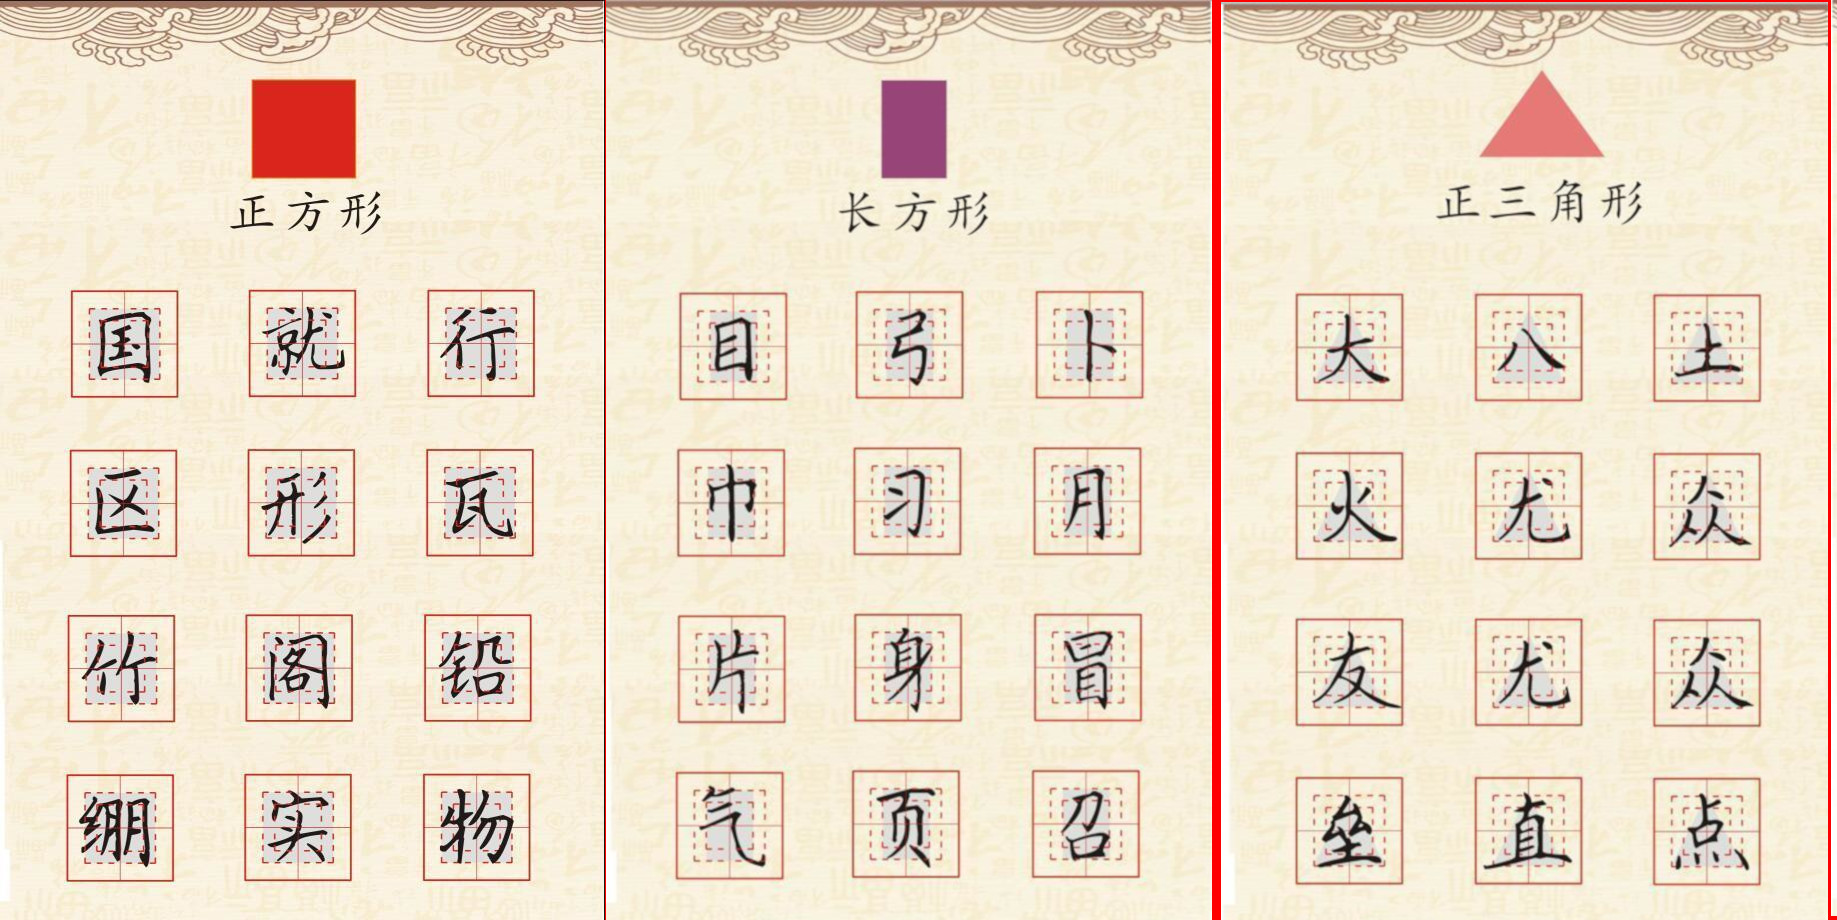 正方形
国 就 行
区 形 瓦
竹 阁 铅
绷 实 物
长方形
目 弓 卜
巾 习 月
片 身 冒
气 页 召
正三角形
大 八 土
火 尤 众
友 尤 众
垒 直 点